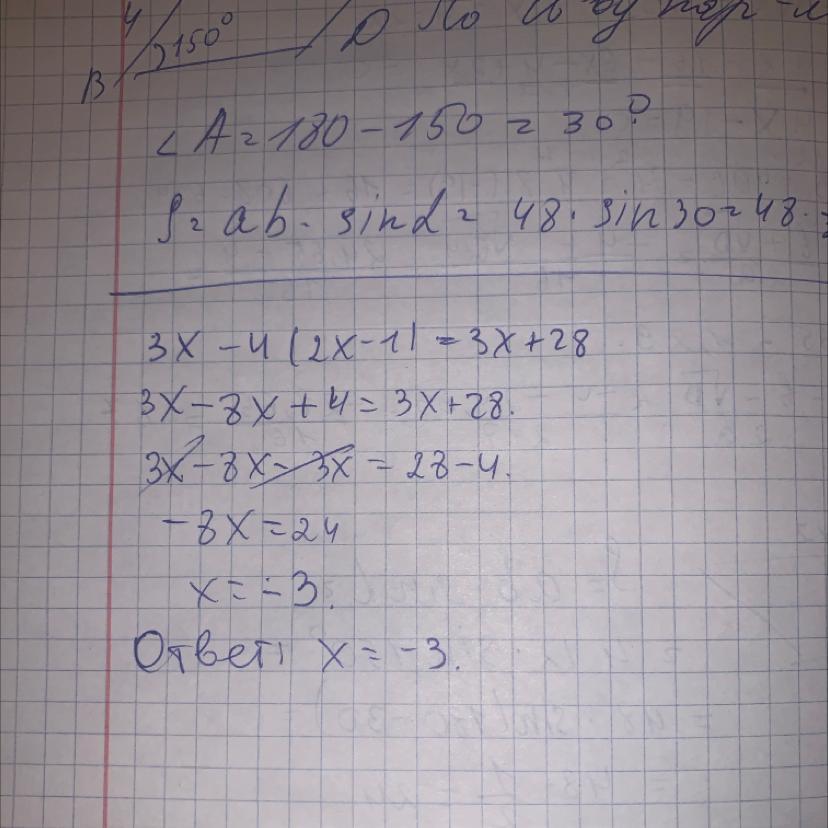 150°
B
D По
∠A = 180 - 150 = 30°
S = ab · sinα = 48 · sin30 = 48 ·
3x - 4(2x-1) = 3x+28
3x - 8x + 4 = 3x+28.
3x - 8x - 3x = 28-4.
-8x = 24
x = -3.
Ответ: x = -3.